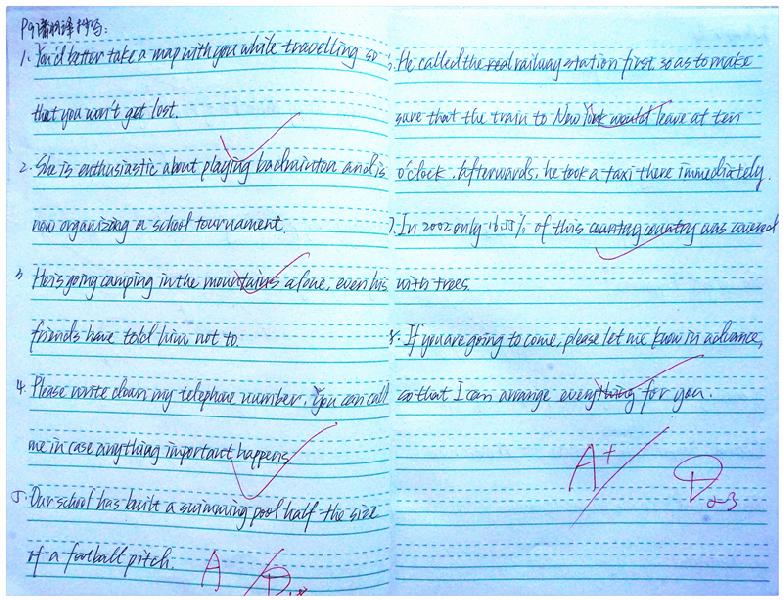 1. You'd better take a map with you while travelling so
that you won't get lost.
2. She is enthusiastic about playing badminton and is
now organizing a school tournament.
3. He is going camping in the mountains alone, even his
friends have told him not to.
4. Please write down my telephone number. You can call
me in case anything important happens.
5. Our school has built a swimming pool half the size
of a football pitch.
A
He called the railway station first so as to make
sure that the train to New York would leave at ten
o'clock. Afterwards, he took a taxi there immediately.
7. In 2002 only 16.55% of this country was covered
with trees.
8. If you are going to come, please let me know in advance,
so that I can arrange everything for you.
A+